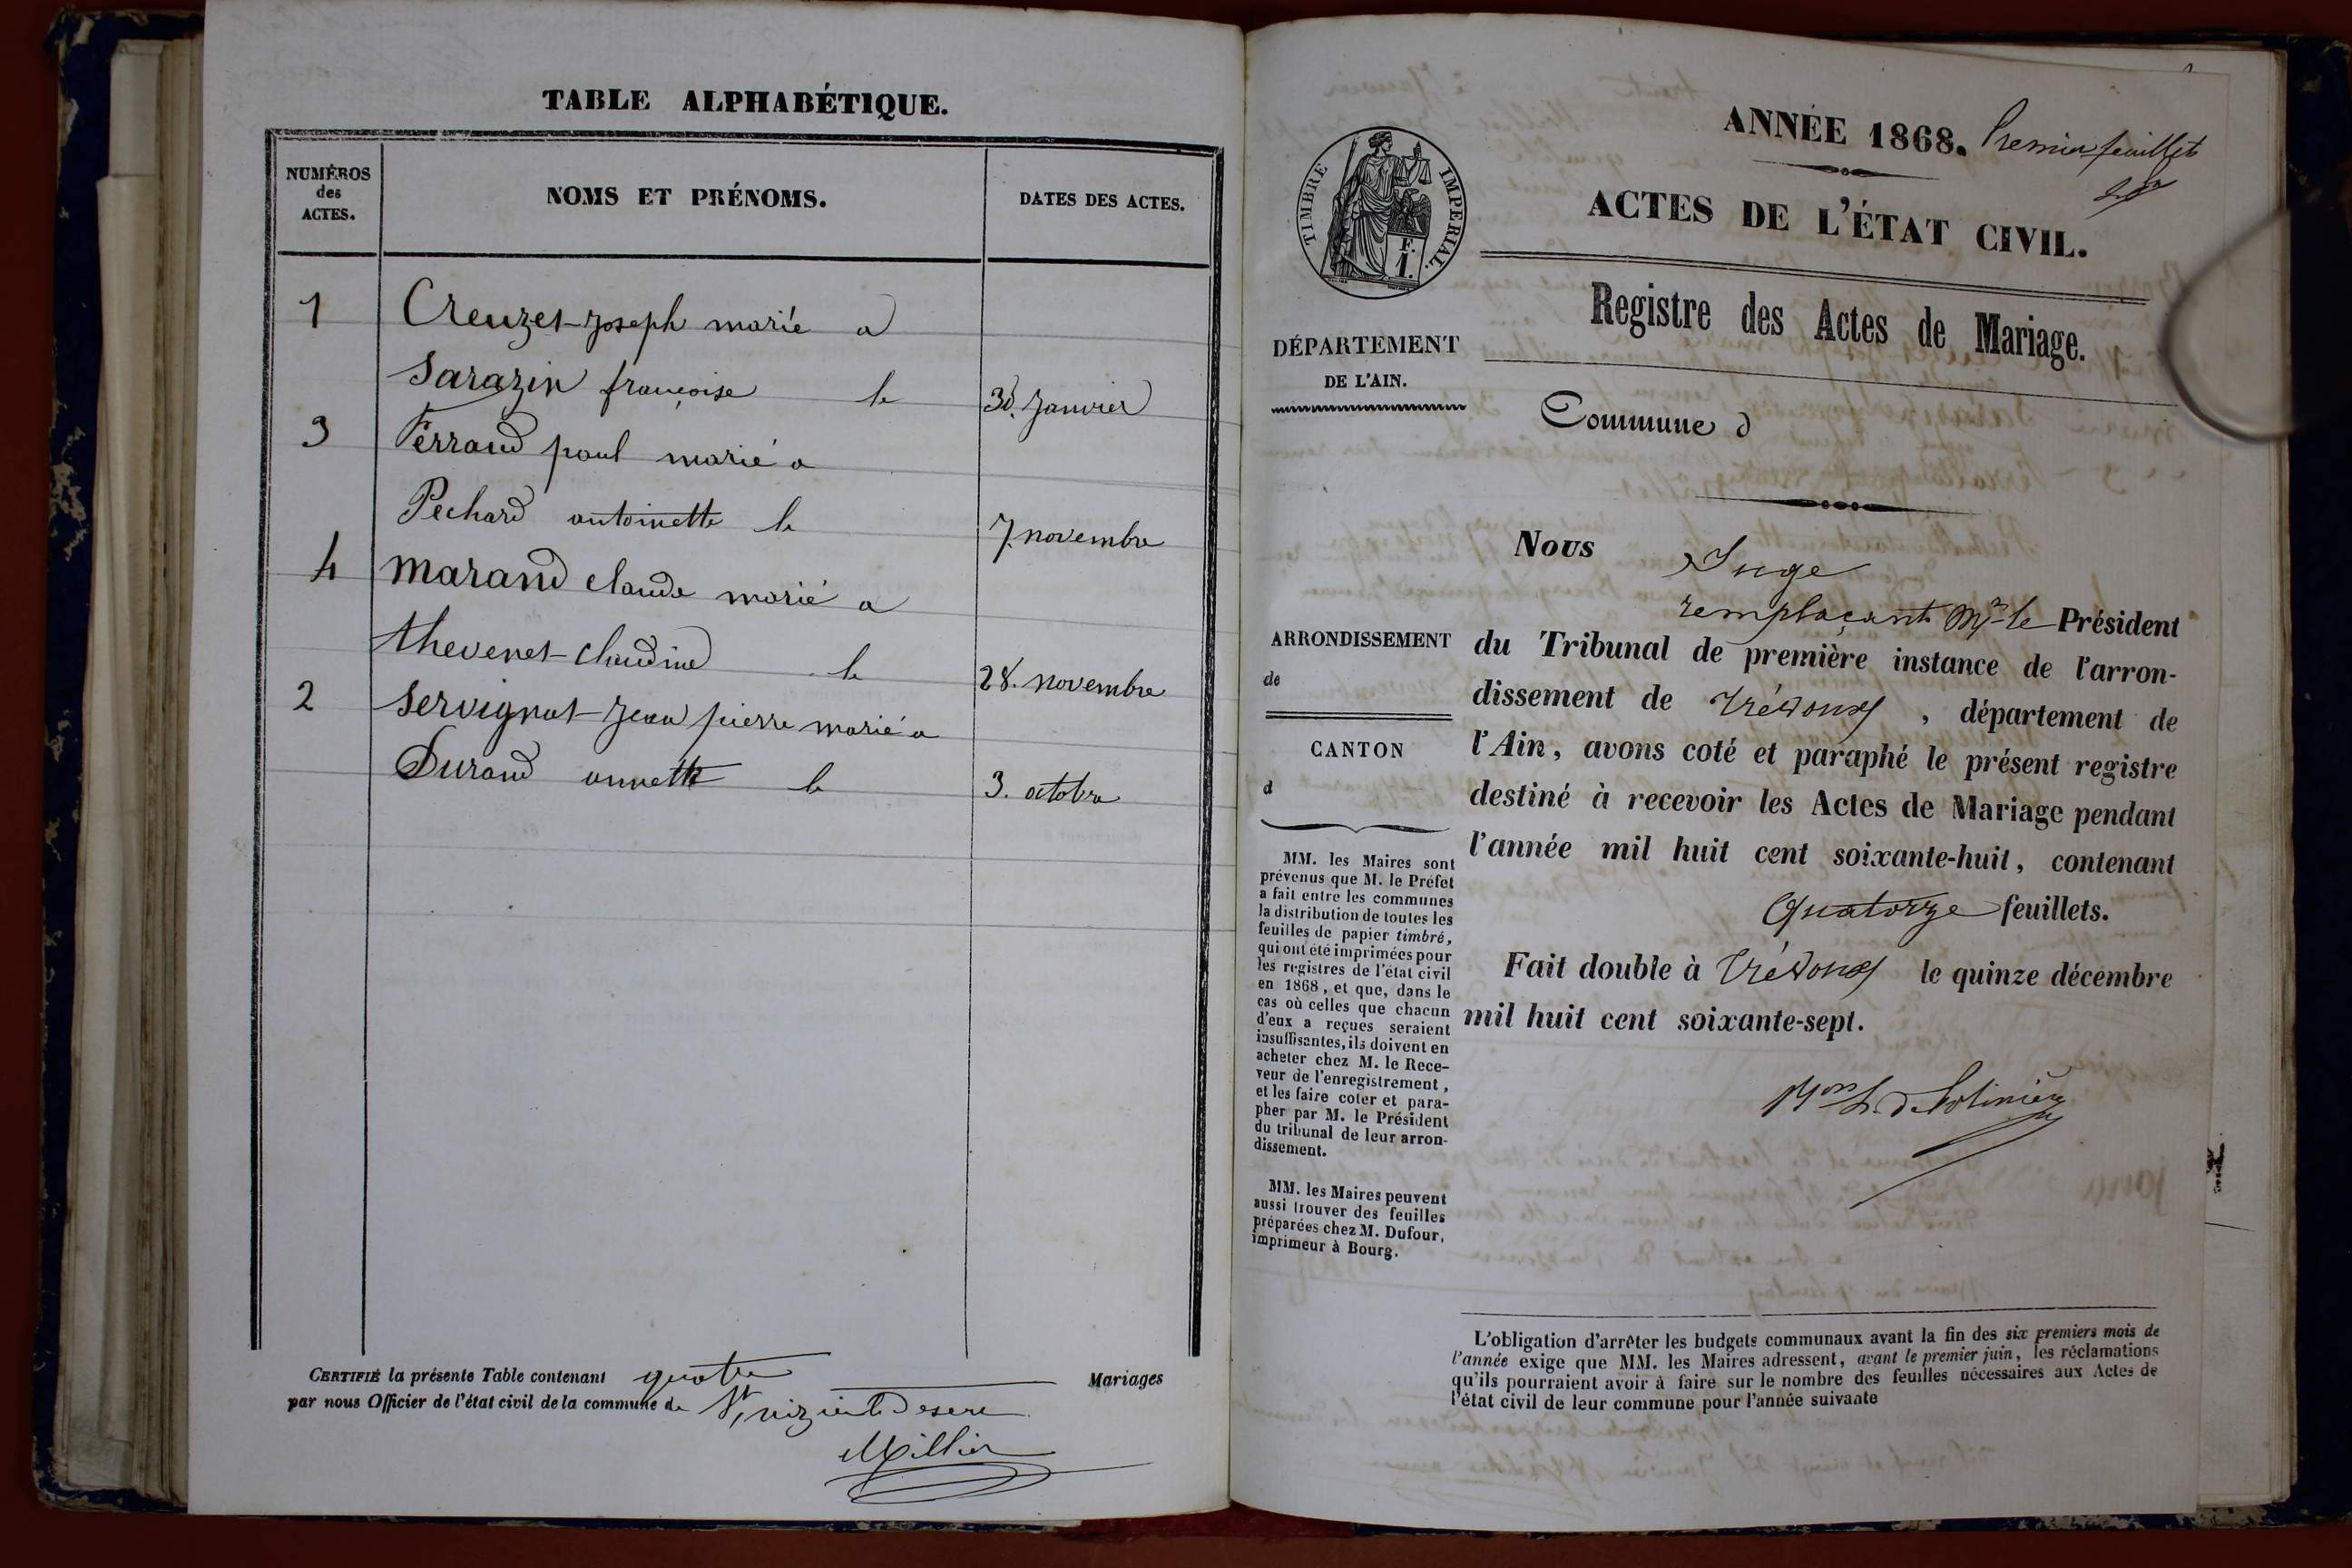 TABLE ALPHABÉTIQUE.
NUMÉROS
des
ACTES.
NOMS ET PRÉNOMS.
DATES DES ACTES.
1 Creuzet Joseph marié a
Sarazin françoise le 30. Janvier
3 Ferrand paul marié a
Pechard antoinette le 7. novembre
4 marand claude marié a
thevenet claudine le 28. novembre
2 servignat Jean pierre marié a
Durand annette le 3. octobre
CERTIFIÉ la présente Table contenant quatre Mariages
par nous Officier de l'état civil de la commune de St nizier le Desert
Millier
ANNÉE 1868. Premier feuillet
ACTES DE L'ÉTAT CIVIL.
TIMBRE IMPERIAL.
E. I.
Registre des Actes de Mariage.
DÉPARTEMENT
DE L'AIN.
Commune d
ARRONDISSEMENT
de
CANTON
d
MM. les Maires sont
prévenus que M. le Préfet
a fait entre les communes
la distribution de toutes les
feuilles de papier timbré,
qui ont été imprimées pour
les registres de l'état civil
en 1868, et que, dans le
cas où celles que chacun
d'eux a reçues seraient
insuffisantes, ils doivent en
acheter chez M. le Rece-
veur de l'enregistrement,
et les faire coter et para-
pher par M. le Président
du tribunal de leur arron-
dissement.
MM. les Maires peuvent
aussi trouver des feuilles
préparées chez M. Dufour,
imprimeur à Bourg.
Nous Juge
remplaçant Mr le Président
du Tribunal de première instance de l'arron-
dissement de Trévoux, département de
l'Ain, avons coté et paraphé le présent registre
destiné à recevoir les Actes de Mariage pendant
l'année mil huit cent soixante-huit, contenant
Quatorze feuillets.
Fait double à Trévoux le quinze décembre
mil huit cent soixante-sept.
L'obligation d'arrêter les budgets communaux avant la fin des six premiers mois de
l'année exige que MM. les Maires adressent, avant le premier juin, les réclamations
qu'ils pourraient avoir à faire sur le nombre des feuilles nécessaires aux Actes de
l'état civil de leur commune pour l'année suivante